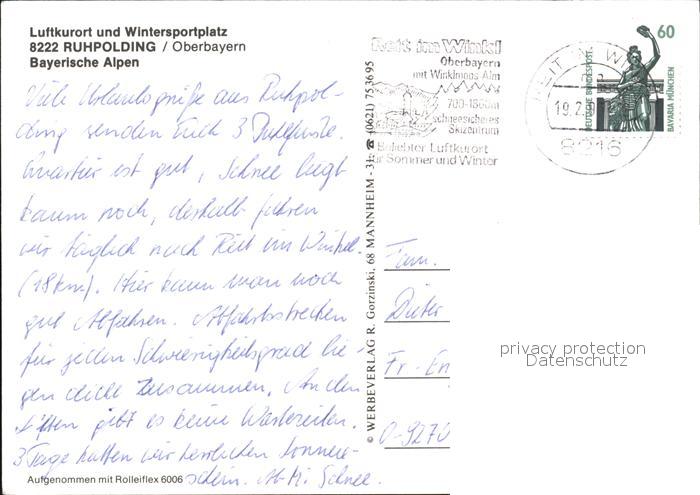 Luftkurort und Wintersportplatz
8222 RUHPOLDING / Oberbayern
Bayerische Alpen
Viele Urlaubsgrüße aus Ruhpol-
ding senden Euch 3
Quartier ist gut, Schnee liegt
kaum noch, deshalb fahren
wir täglich nach Reit im Winkel.
(18km). Hier kann man noch
gut Abfahren. Abfahrtsstrecken
für jeden Schwierigkeitsgrad lie-
gen dicht zusammen. An den
Liften gibt es keine Wartezeiten.
3 Tage hatten wir herrlichen Sonnen-
schein. Ab Mi. Schnee.
Aufgenommen mit Rolleiflex 6006
© WERBEVERLAG R. Gorzinski, 68 MANNHEIM - 31, ☎ (0621) 75 36 95
Reit im Winkl
Oberbayern
mit Winklmoos Alm
700-1860m
schneesicheres
Skizentrum
Beliebter Luftkurort
für Sommer und Winter
REIT IM WI
19.2.
8216
60
DEUTSCHE BUNDESPOST
BAVARIA MÜNCHEN
Fam.
Dieter
Fr.-En
O-9270
privacy protection
Datenschutz